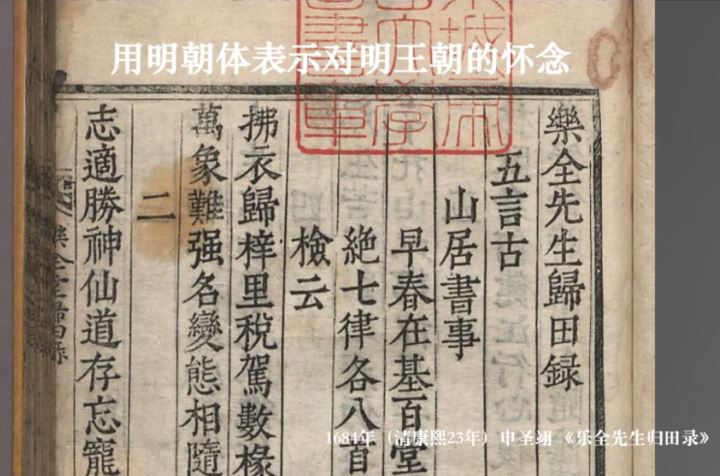 用明朝体表示对明王朝的怀念
樂全先生歸田録
五言古
山居書事
早春在基百堂
絶七律各八首
檢云
拂衣歸梓里稅駕數椽
萬象難强名變態相隨
二
志適勝神仙道存忘寵
1684年（清康熙23年）申圣翊 《乐全先生归田录》